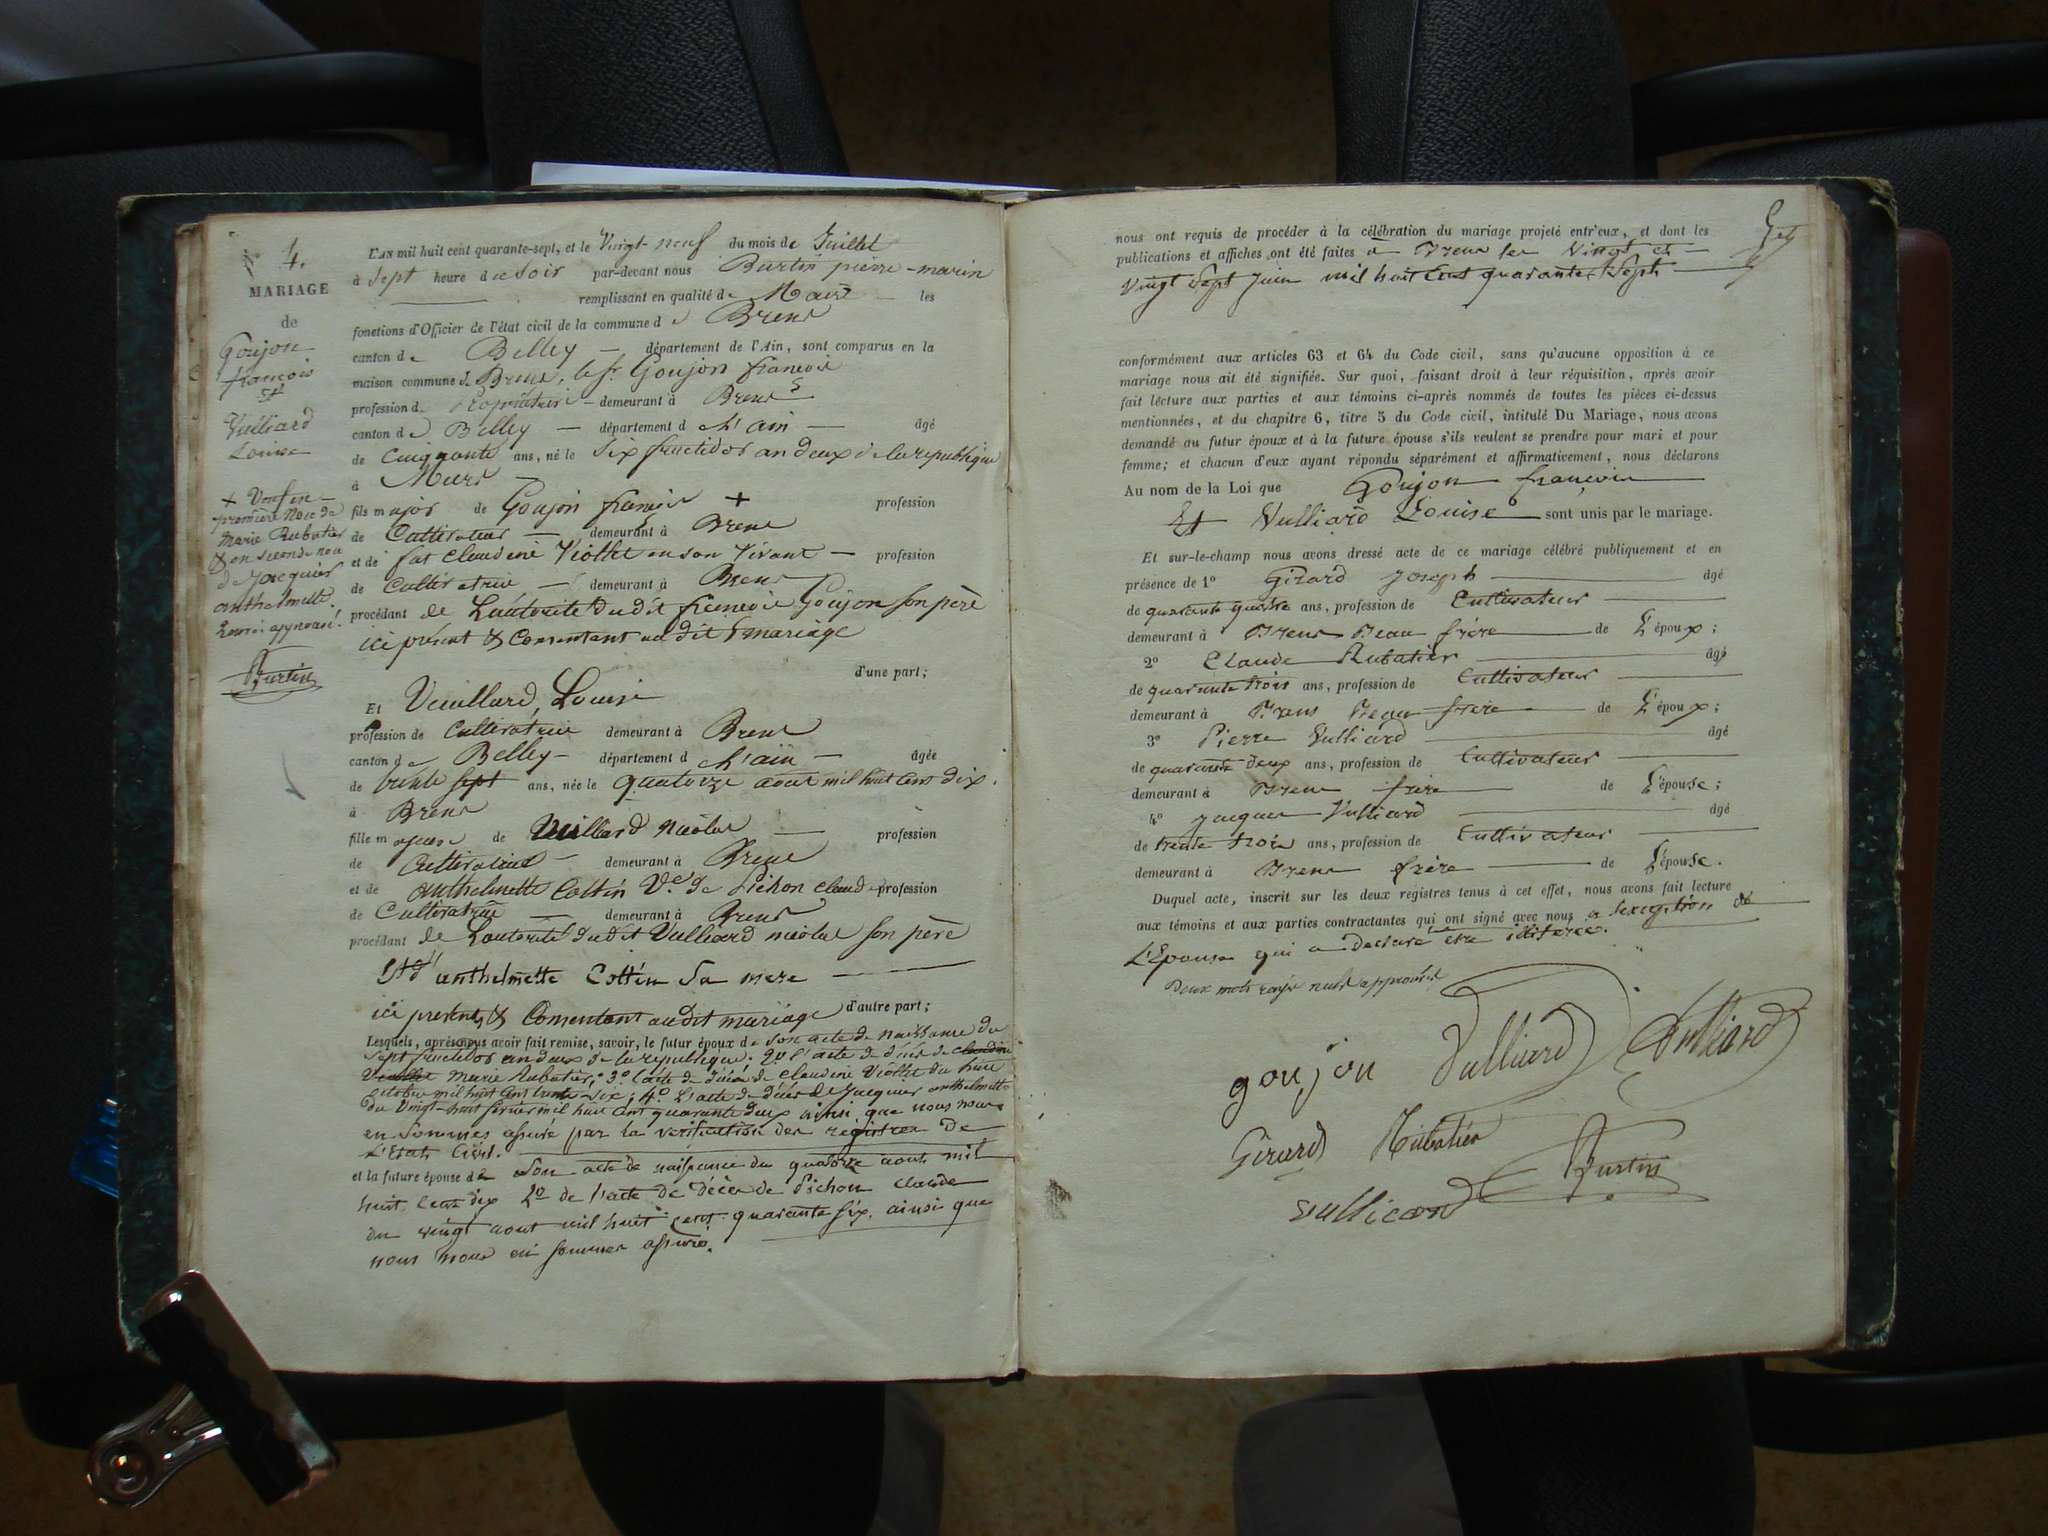 N° 4.
MARIAGE
de
Goujon
françois
et
Vulliard
Louise
+ Veuf en
première Noce de
Marie Rubatier
& en seconde noce
de Jacquier
anthelmette.
Renvoi approuvé!
Burtin
L'AN mil huit cent quarante-sept, et le Vingt-neuf du mois de Juillet
à Sept heure du Soir par-devant nous Burtin pierre-marin
remplissant en qualité de Maire les
fonctions d'Officier de l'état civil de la commune de Brens
canton de Belley département de l'Ain, sont comparus en la
maison commune de Brens, le sr. Goujon françois
profession de Propriétaire demeurant à Brens
canton de Belley département d l'ain âgé
de Cinquante ans, né le Six fructidor an deux de la republique
à Murs
fils majeur de Goujon françois + profession
de Cultivateur demeurant à Brens
et de fut Claudine Viollet en son Vivant profession
de Cultivatrice demeurant à Brens
procédant de Lautorité du dit françois Goujon son père
ici présent & Consentant au dit mariage
d'une part;
Et Veuillard, Louise
profession de Cultivatrice demeurant à Brens
canton de Belley département d l'ain âgée
de trente sept ans, née le quatorze aout mil huit cens dix.
à Brens
fille majeure de Vuillard Nicolas profession
de Cultivateur demeurant à Brens
et de anthelmette Cottin Ve. de Pichon Claude profession
de Cultivatrice demeurant à Brens
procédant de Lautorité du dit Vulliard nicolas son père
Et d'anthelmette Cottin Sa mere
ici present & Consentant au dit mariage d'autre part;
Lesquels, après nous avoir fait remise, savoir, le futur époux de son acte de naissance du
Sept fructidor an deux de la republique. 2° l'acte de décès de Claudine
Viollet Marie Rubatier, 3° l'acte de décès de Claudine Viollet du huit
octobre mil huit cent trente-six; 4° L'acte de décès de Jacquier anthelmette
du Vingt-huit fevrier mil huit cent quarante deux ainsi que nous nous
en Sommes assuré par la verification des registres de
L'Etat Civil.
et la future épouse de Son acte de naissance du quatorze aout mil
huit cent dix 2° de l'acte de décès de Pichon Claude
du vingt aout mil huit cent quarante six. ainsi que
nous nous en sommes assuré.
nous ont requis de procéder à la célébration du mariage projeté entr'eux, et dont les
publications et affiches ont été faites à Brens les Vingt et
Vingt Sept Juin mil huit Cent quarante Sept
conformément aux articles 63 et 64 du Code civil, sans qu'aucune opposition à ce
mariage nous ait été signifiée. Sur quoi, faisant droit à leur réquisition, après avoir
fait lecture aux parties et aux témoins ci-après nommés de toutes les pièces ci-dessus
mentionnées, et du chapitre 6, titre 5 du Code civil, intitulé Du Mariage, nous avons
demandé au futur époux et à la future épouse s'ils veulent se prendre pour mari et pour
femme; et chacun d'eux ayant répondu séparément et affirmativement, nous déclarons
Au nom de la Loi que Goujon françois
Et Vulliard Louise sont unis par le mariage.
Et sur-le-champ nous avons dressé acte de ce mariage célébré publiquement et en
présence de 1° Girard Joseph âgé
de quarante quatre ans, profession de Cultivateur
demeurant à Brens Beau frère de L'époux;
2° Claude Rubatier âgé
de quarante trois ans, profession de Cultivateur
demeurant à Brens Beau frere de L'époux;
3° Pierre Vulliard âgé
de quarante deux ans, profession de Cultivateur
demeurant à Brens frère de L'épouse;
4° Jacques Vulliard âgé
de trente trois ans, profession de Cultivateur
demeurant à Brens frère de L'épouse.
Duquel acte, inscrit sur les deux registres tenus à cet effet, nous avons fait lecture
aux témoins et aux parties contractantes qui ont signé avec nous a lexception de
L'Epouse qui a declaré etre illiteree.
Deux mots rayés nuls approuvés
goujon Vulliard Vulliard
Girard Rubatier
Burtin
vulliard